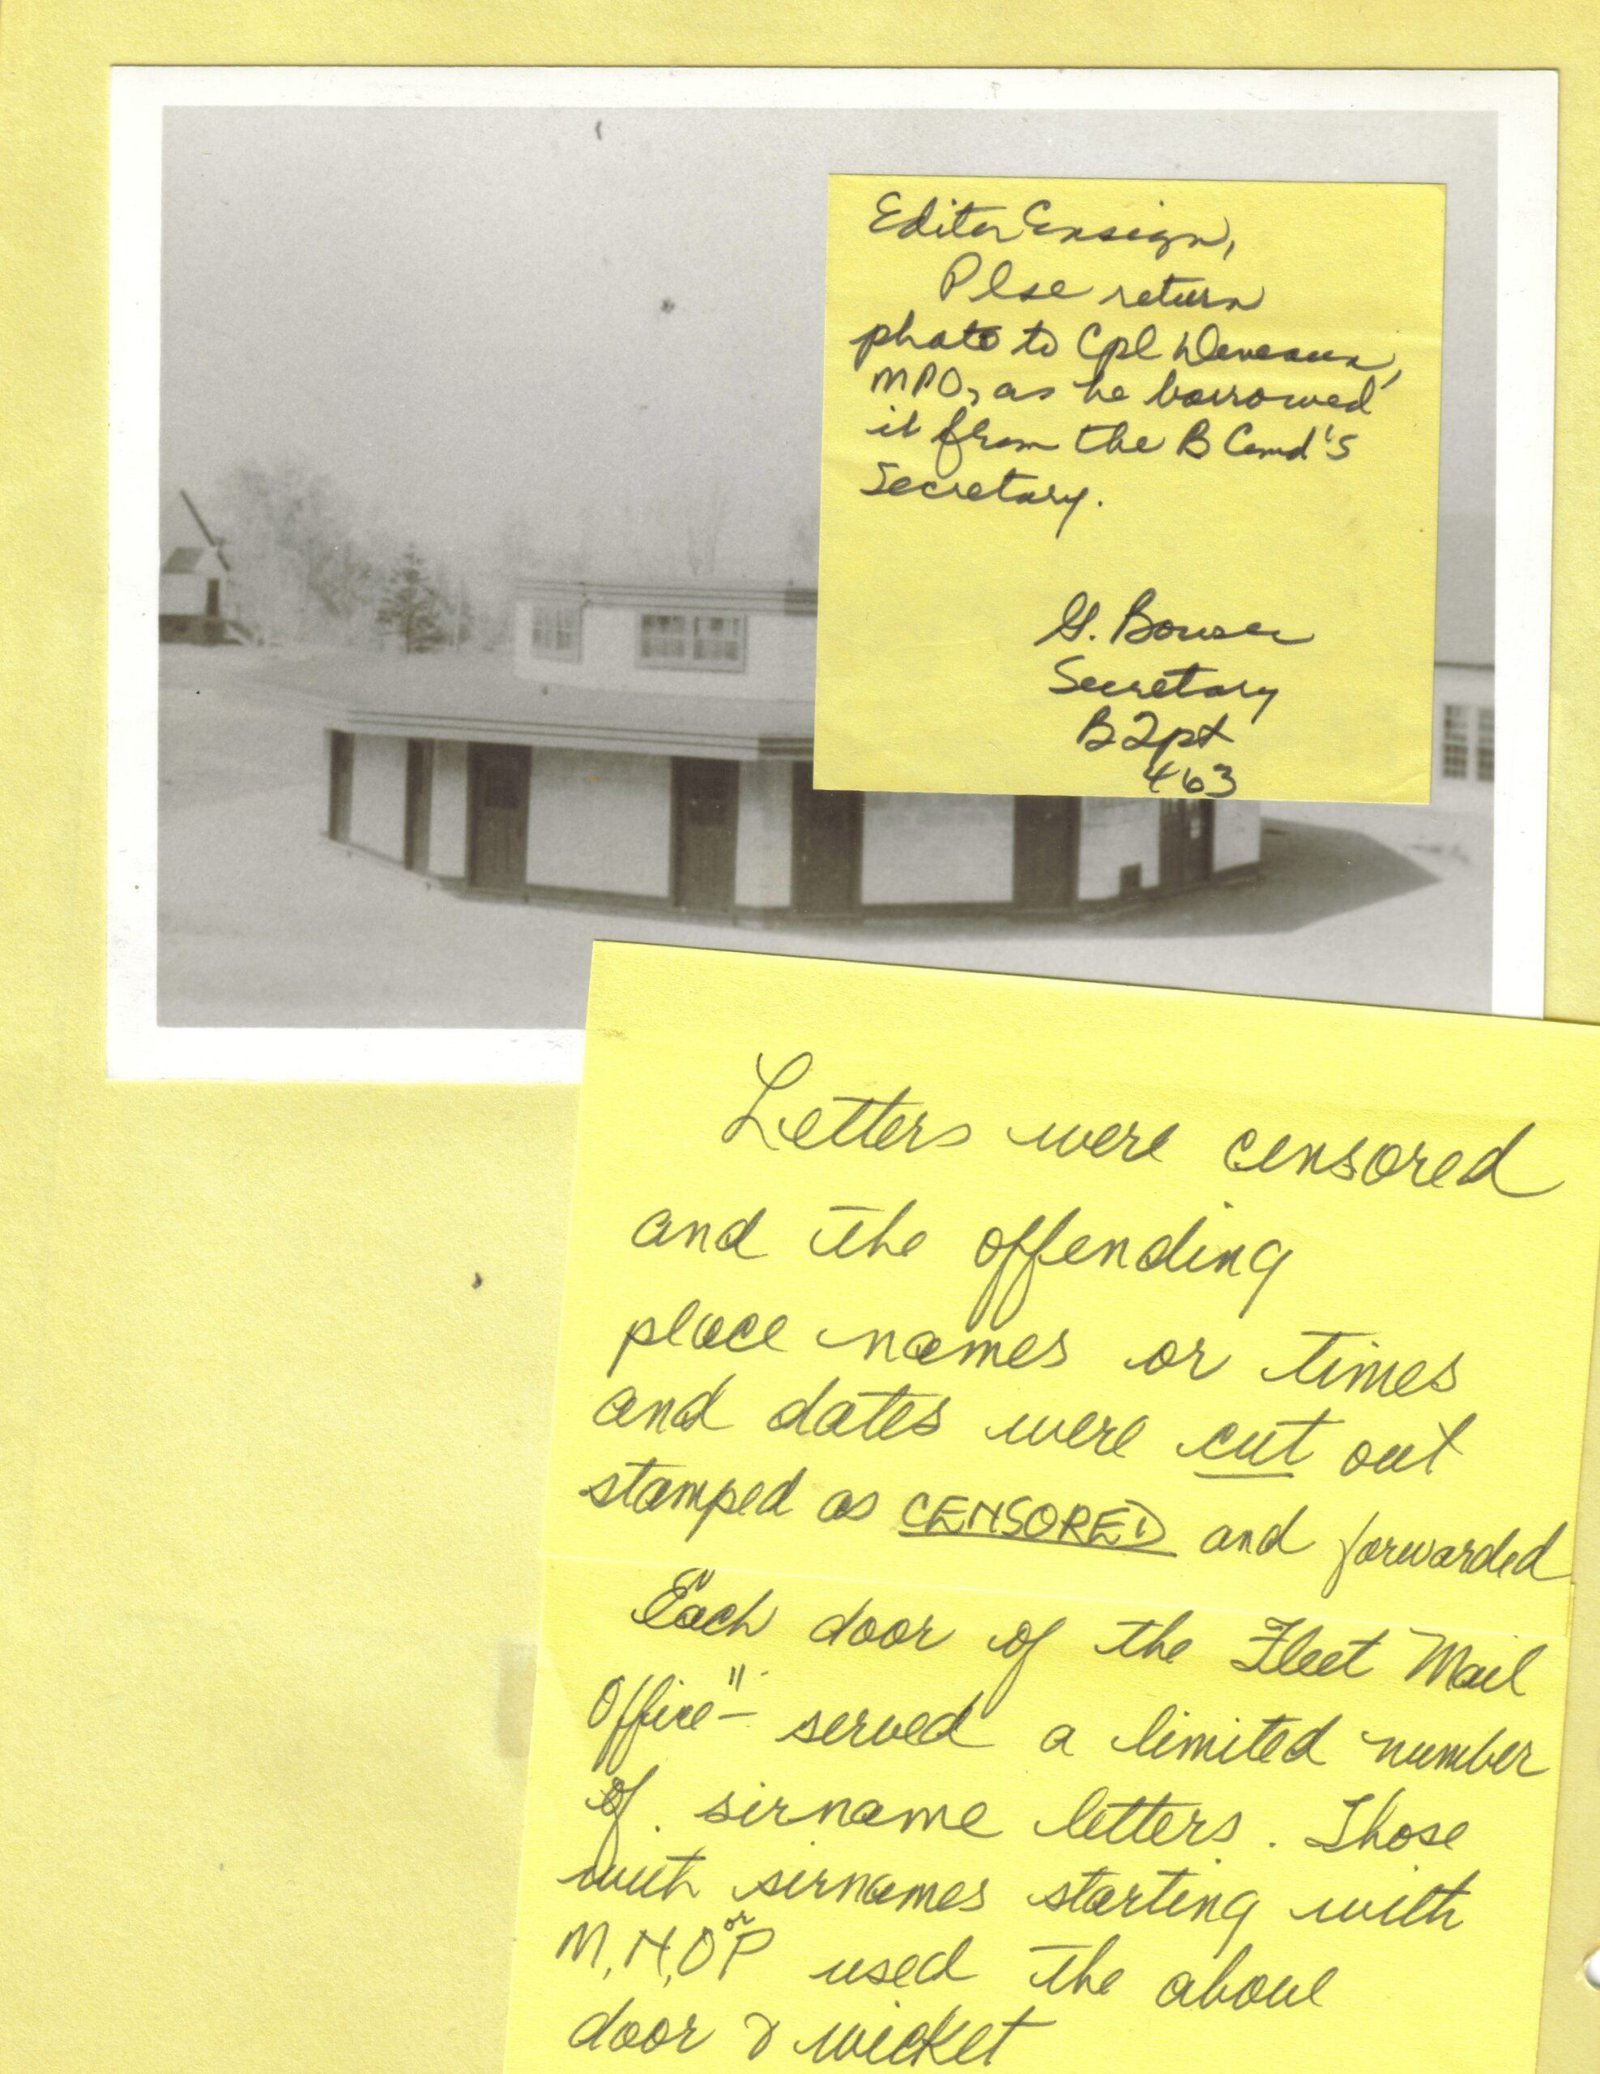 Editor Ensign,
Plse return
photo to Cpl Deveaux,
MPO, as he borrowed
it from the B Comd's
Secretary.
G. Bowser
Secretary
B2pt
463
Letters were censored
and the offending
place names or times
and dates were cut out
stamped as CENSORED and forwarded
"Each door of the Fleet Mail
Office"- served a limited number
of sirname letters. Those
with sirnames starting with
M, N, O or P used the above
door & wicket